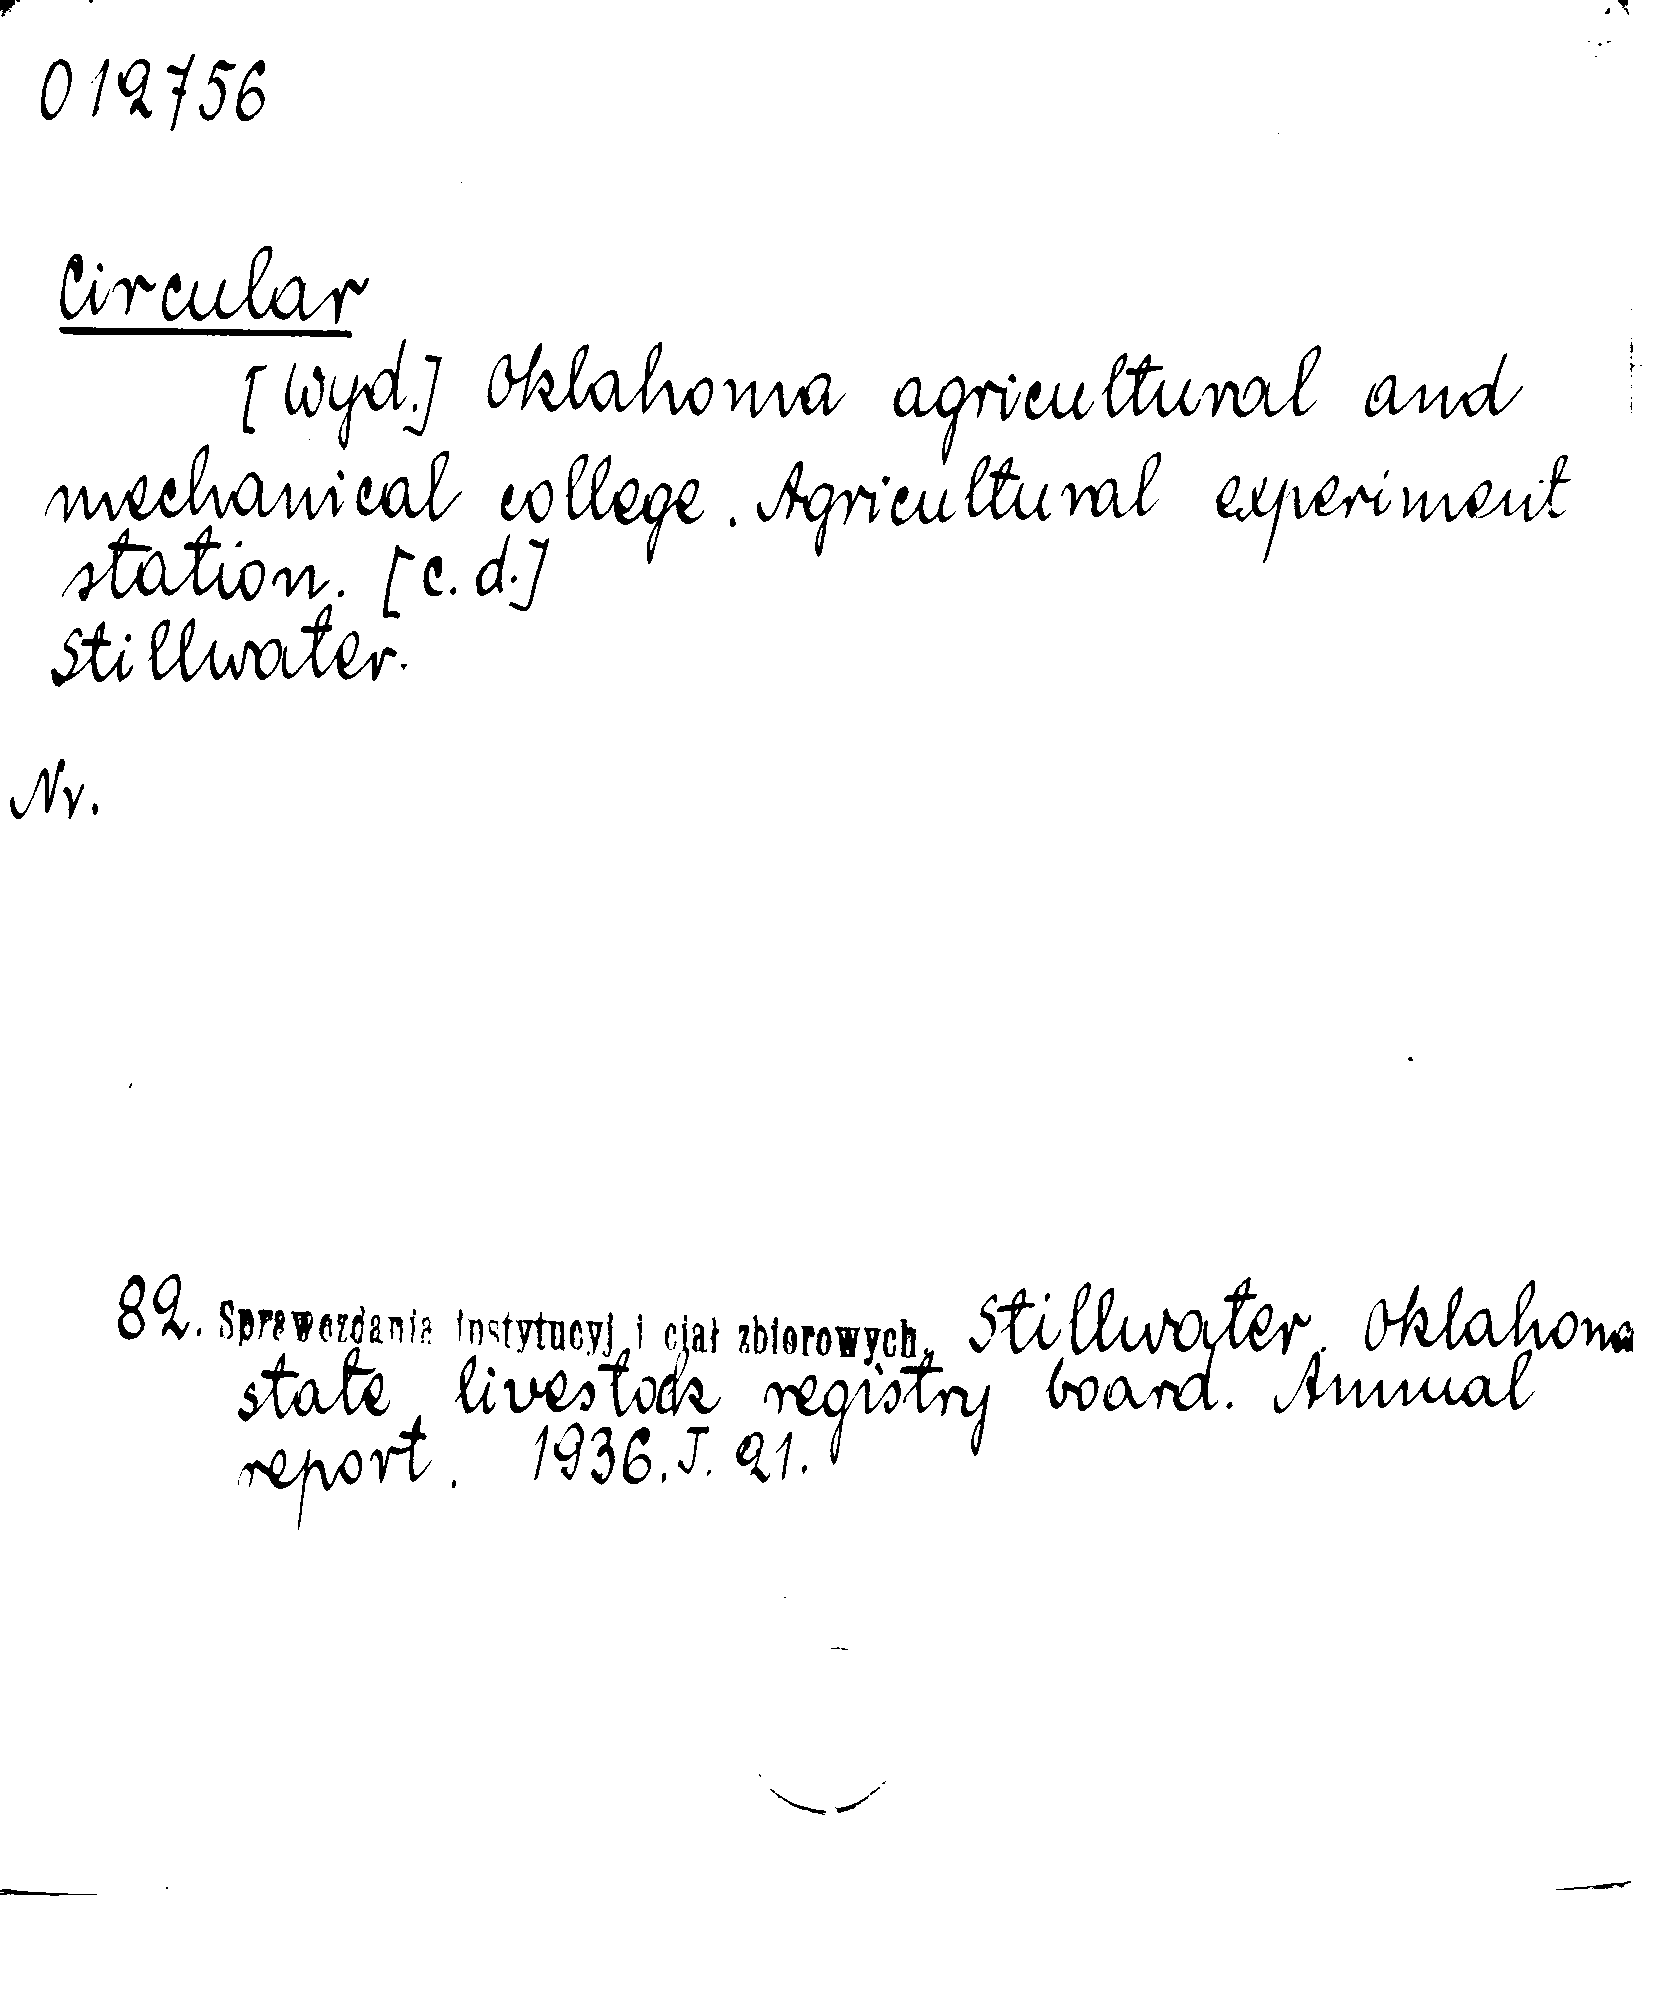 012756
Circular
[Wyd.] Oklahoma agricultural and
mechanical college. Agricultural experiment
station. [c.d.]
Stillwater.
Nr.
82. Sprawozdania instytucyj i ciał zbiorowych. Stillwater. Oklahoma
state livestock registry board. Annual
report. 1936. J. 21.